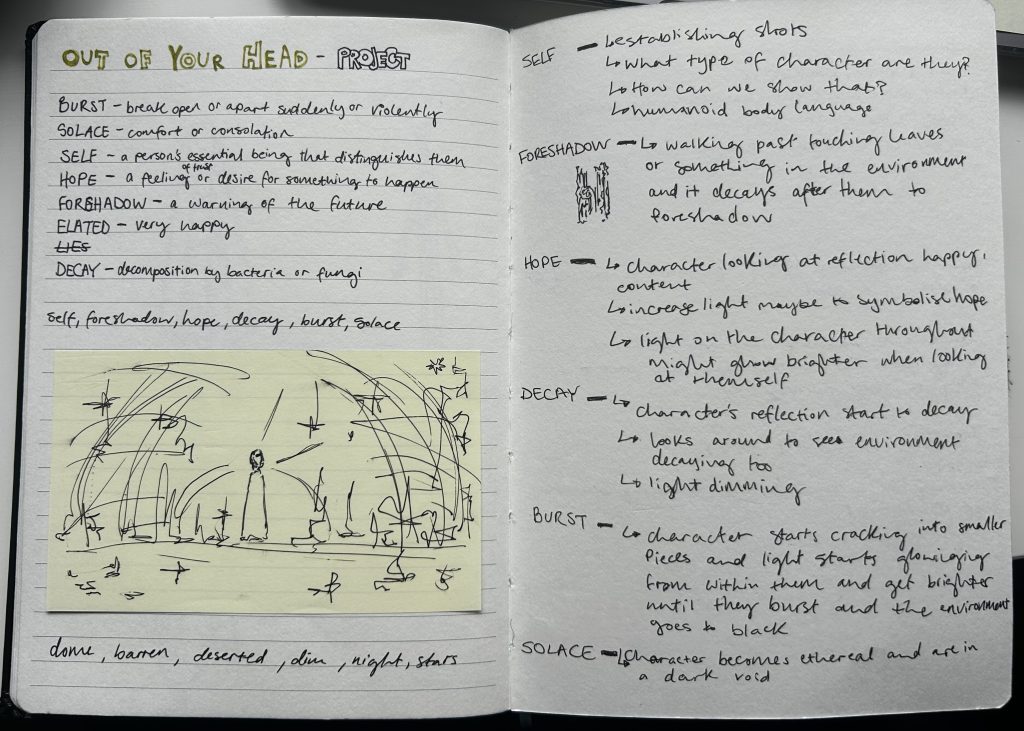 OUT OF YOUR HEAD - PROJECT
BURST - break open or apart suddenly or violently
SOLACE - comfort or consolation
SELF - a person's essential being that distinguishes them
HOPE - a feeling of trust or desire for something to happen
FORESHADOW - a warning of the future
ELATED - very happy
LIES
DECAY - decomposition by bacteria or fungi
self, foreshadow, hope, decay, burst, solace
dome, barren, deserted, dim, night, stars
SELF - establishing shots
↳ what type of character are they?
↳ How can we show that?
↳ humanoid body language
FORESHADOW - ↳ walking past touching leaves
or something in the environment
and it decays after them to
foreshadow
HOPE - ↳ character looking at reflection happy,
content
↳ increase light maybe to symbolise hope
↳ light on the character throughout
might glow brighter when looking
at themself
DECAY - ↳ character's reflection start to decay
↳ looks around to see environment
decaying too
↳ light dimming
BURST - ↳ character starts cracking into smaller
pieces and light starts glowing
from within them and get brighter
until they burst and the environment
goes to black
SOLACE - ↳ character becomes ethereal and are in
a dark void